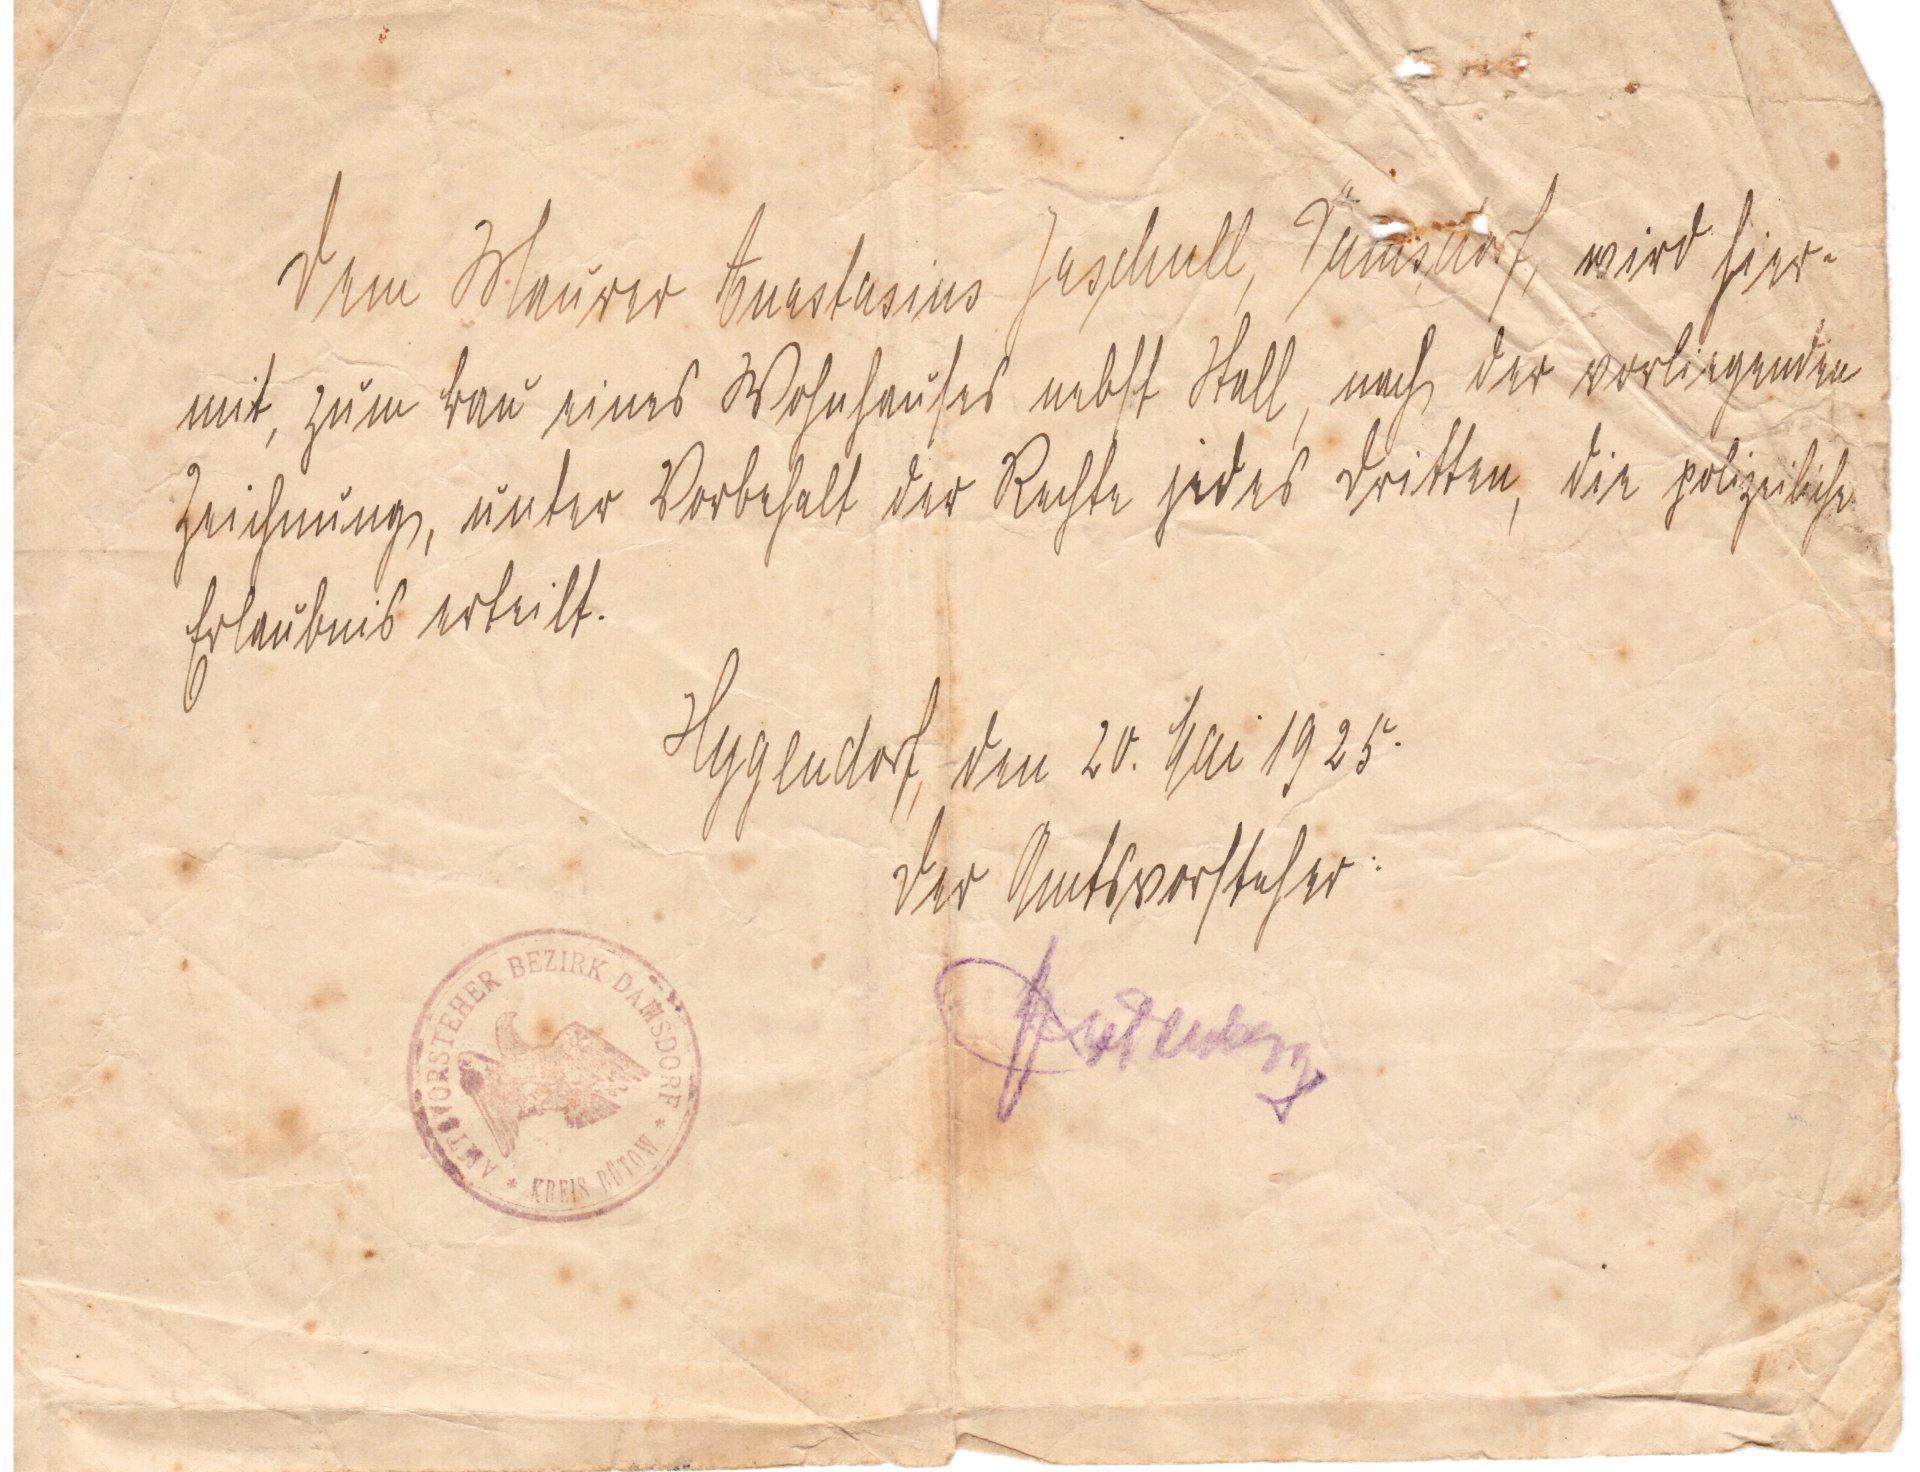 Dem Maurer Anastasius Jaschull, Damsdorf, wird hier-
mit, zum Bau eines Wohnhauses nebst Stall, nach der vorliegenden
Zeichnung, unter Vorbehalt der Rechte jedes Dritten, die polizeiliche
Erlaubnis erteilt.
Hygendorf, den 20. Mai 1925.
Der Amtsvorsteher:
AMTSVORSTEHER BEZIRK DAMSDORF
* KREIS BÜTOW *